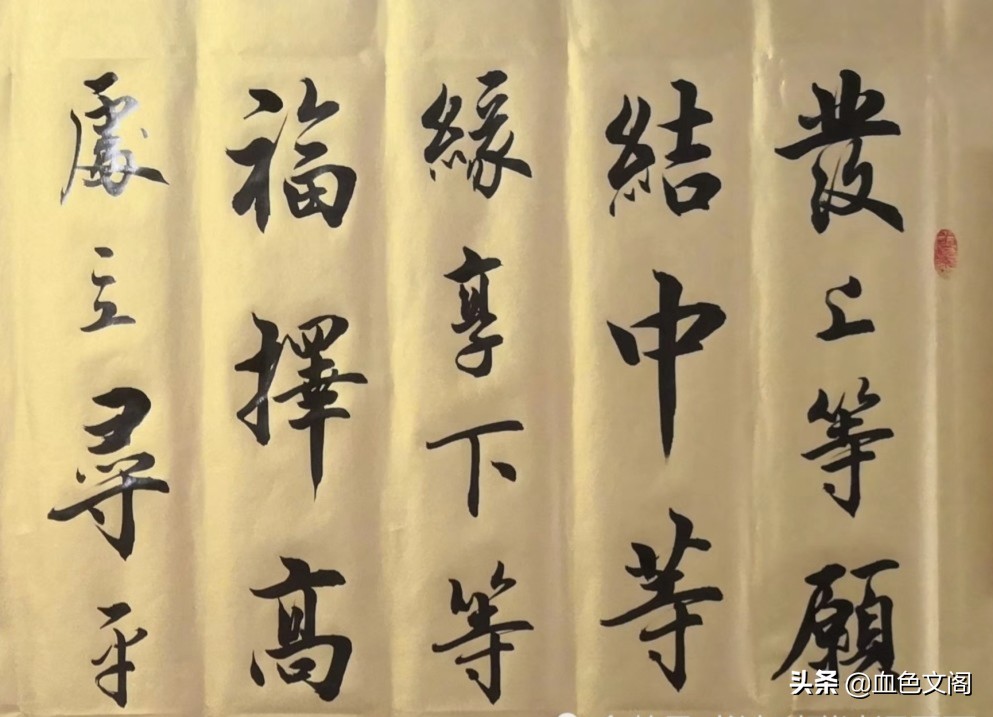 發上等願
結中等
緣享下等
福擇高
處立尋平
头条 @血色文阁